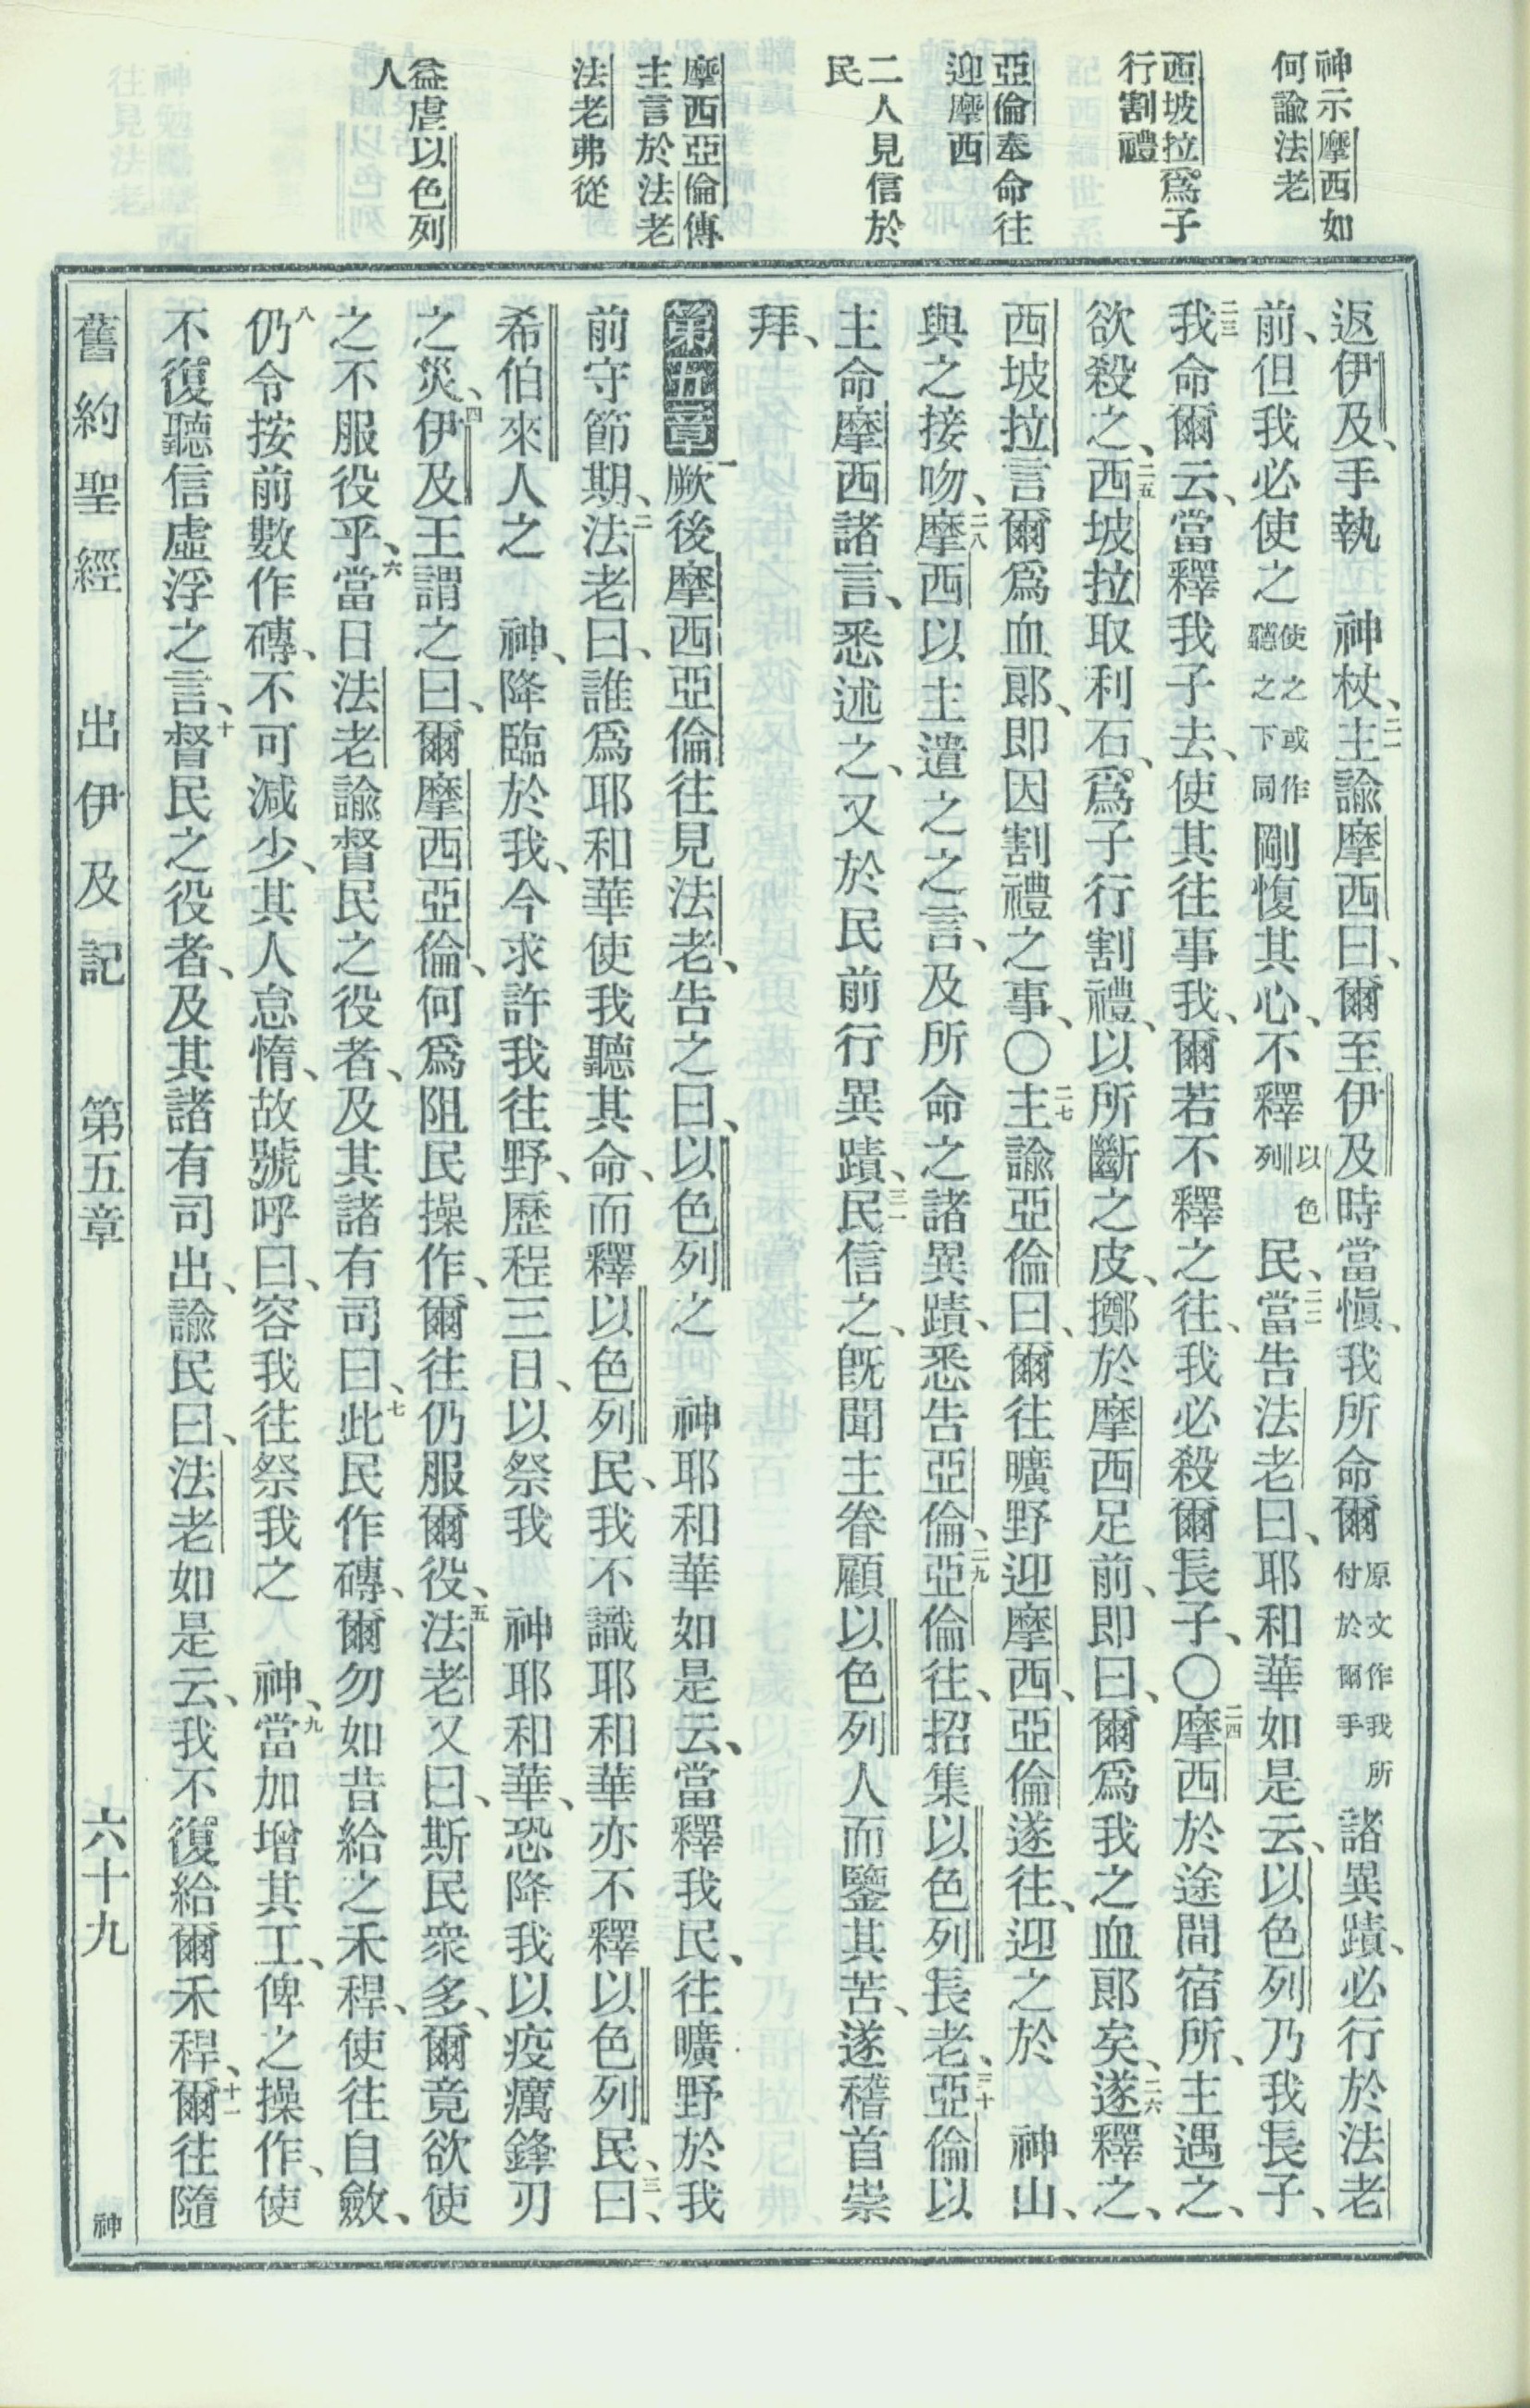 神示摩西如
何諭法老
西坡拉爲子
行割禮
亞倫奉命往
迎摩西
二人見信於
民
摩西亞倫傳
主言於法老
法老弗從
益虐以色列
人
返伊及、手執　神杖、二一主諭摩西曰、爾至伊及時當愼、我所命爾原文作我所付於爾手諸異蹟、必行於法老
前、但我必使之使之或作聽之下同剛愎其心、不釋以色列民、二二當告法老曰、耶和華如是云、以色列乃我長子、
二三我命爾云、當釋我子去、使其往事我、爾若不釋之往、我必殺爾長子、〇二四摩西於途間宿所、主遇之、
欲殺之、二五西坡拉取利石、爲子行割禮、以所斷之皮、擲於摩西足前、即曰、爾爲我之血郞矣、二六遂釋之、
西坡拉言爾爲血郞、即因割禮之事、〇二七主諭亞倫曰、爾往曠野迎摩西、亞倫遂往、迎之於　神山、
與之接吻、二八摩西以主遣之之言、及所命之諸異蹟、悉告亞倫、二九亞倫往、招集以色列長老、三十亞倫以
主命摩西諸言、悉述之、又於民前行異蹟、三一民信之、既聞主眷顧以色列人而鑒其苦、遂稽首崇
拜、
第五章一厥後摩西亞倫往見法老、告之曰、以色列之　神耶和華如是云、當釋我民、往曠野於我
前守節期、二法老曰、誰爲耶和華使我聽其命、而釋以色列民、我不識耶和華亦不釋以色列民、三曰、
希伯來人之　神、降臨於我、今求許我往野、歷程三日、以祭我　神耶和華、恐降我以疫癘鋒刃
之災、四伊及王謂之曰、爾摩西亞倫、何爲阻民操作、爾往仍服爾役、五法老又曰、斯民衆多、爾竟欲使
之不服役乎、六當日法老諭督民之役者、及其諸有司曰、七此民作磚、爾勿如昔給之禾稈、使往自斂、
八仍令按前數作磚、不可減少、其人怠惰、故號呼曰、容我往祭我之　神、九當加增其工、俾之操作、使
不復聽信虛浮之言、十督民之役者、及其諸有司出、諭民曰、法老如是云、我不復給爾禾稈、十一爾往隨
舊約聖經　出伊及記　第五章　六十九　神